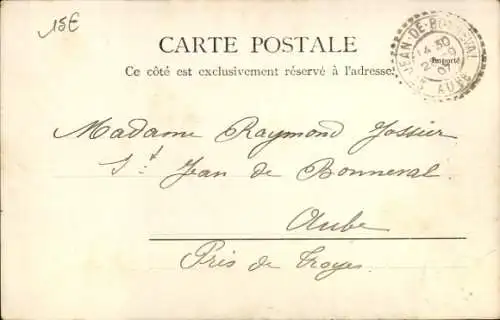 15€
CARTE POSTALE
Ce côté est exclusivement réservé à l'adresse.
JEAN-DE-BONNEVAL
14 30
AUBE
Madame Raymond Jossier
St Jean de Bonneval
Aube
Près de Troyes